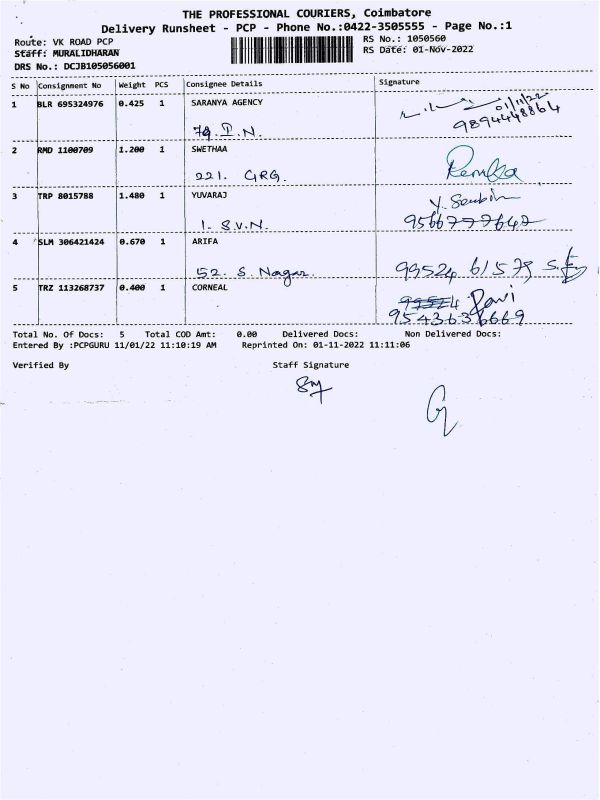 THE PROFESSIONAL COURIERS, Coimbatore
Delivery Runsheet - PCP - Phone No.:0422-3505555 - Page No.:1
Route: VK ROAD PCP
RS No.: 1050560
Staff: MURALIDHARAN
RS Date: 01-Nov-2022
DRS No.: DCJB105056001
S No Consignment No Weight PCS Consignee Details Signature
1 BLR 695324976 0.425 1 SARANYA AGENCY
01/11/22
79. I. N. 9894448864
2 RMD 1100709 1.200 1 SWETHAA
221. GRG. Renuka
3 TRP 8015788 1.480 1 YUVARAJ
1. S.V.N. 9566777642
4 SLM 306421424 0.670 1 ARIFA
52. S. Nagar. 99524 61579
5 TRZ 113268737 0.400 1 CORNEAL
99524 Ravi
9543636669
Total No. Of Docs: 5 Total COD Amt: 0.00 Delivered Docs: Non Delivered Docs:
Entered By :PCPGURU 11/01/22 11:10:19 AM Reprinted On: 01-11-2022 11:11:06
Verified By Staff Signature